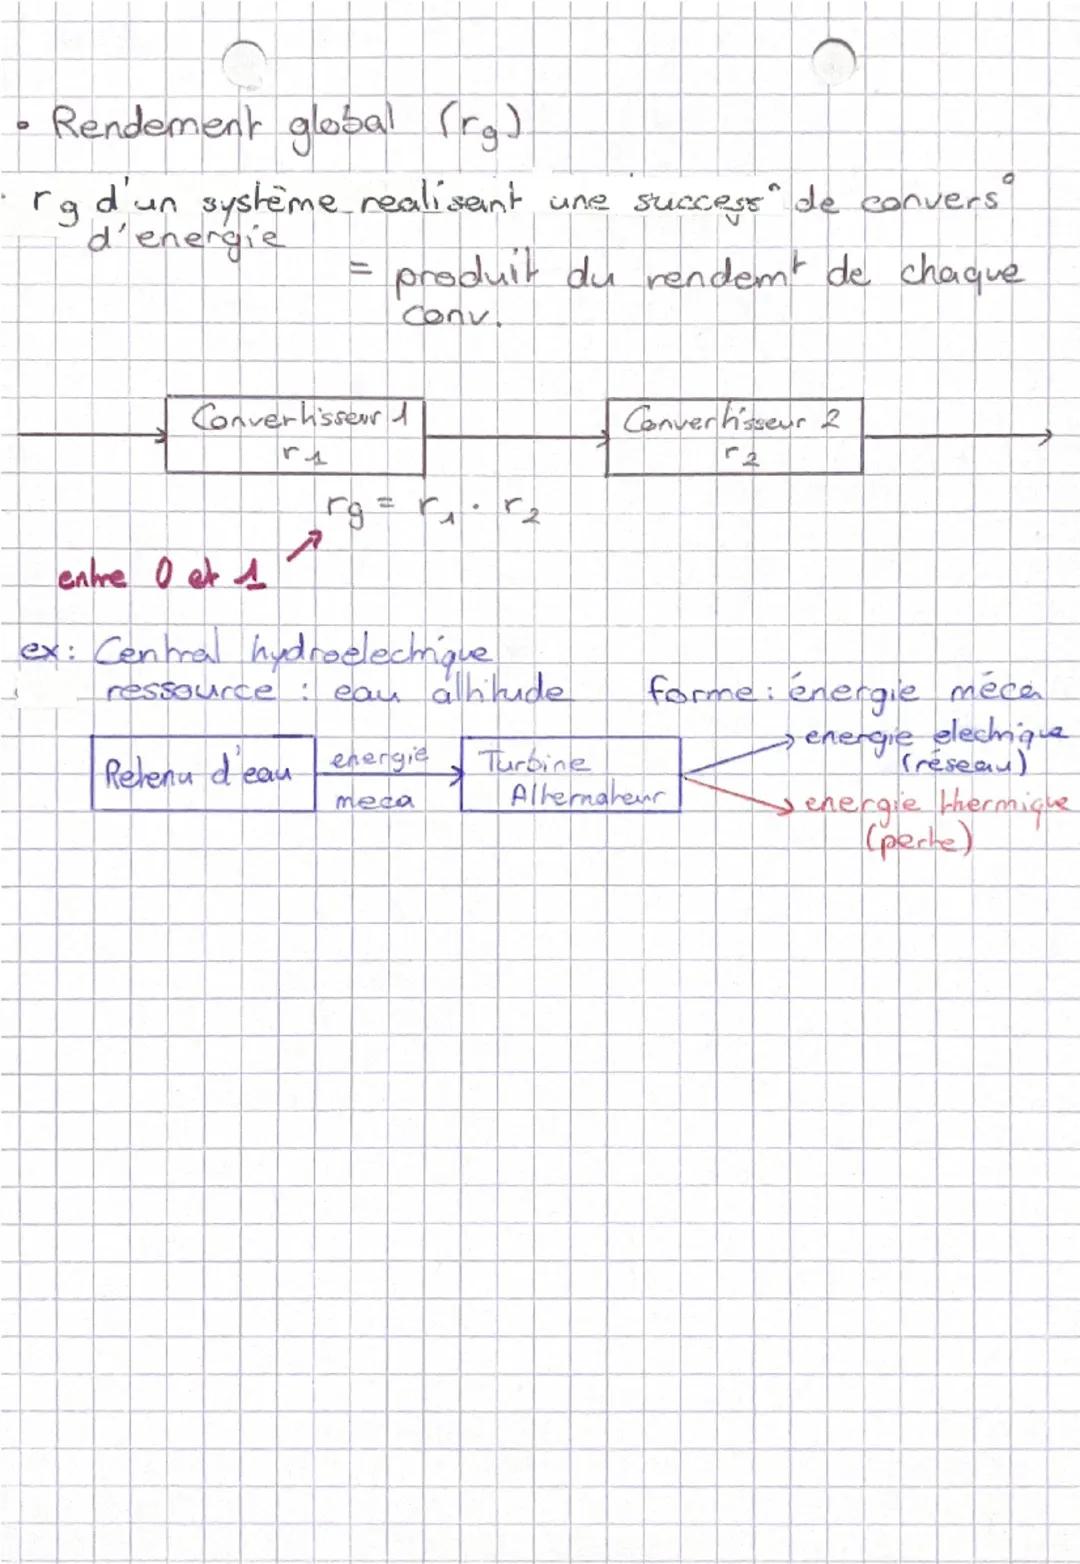 • Rendement global (rg)
rg d'un système realisant une success° de convers°
d'energie
= produit du rendemt de chaque
conv.
Convertisseur 1
r1
Convertisseur 2
r2
rg = r1 . r2
entre 0 et 1
ex: Central hydroelectrique
ressource : eau altitude forme : énergie méca
Retenu d'eau
energie
meca
Turbine
Alternateur
energie electrique
(réseau)
energie thermique
(perte)